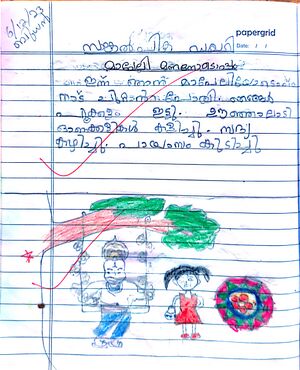 6/12/23
ബുധൻ
papergrid
Date: / /
സങ്കൽപിക ഡയറി
മാവേലി മന്നനോടൊപ്പം
ഇന്ന് ഞാൻ മാവേലിയോടൊപ്പം
നാട് ചുറ്റാൻ പോയി. ഞങ്ങൾ
പൂക്കളം ഇട്ടി. ഊഞ്ഞാലാടി
ഓണക്കളികൾ കളിച്ചു. സദ്യ
കഴിച്ചു. പായസം കുടിച്ചു